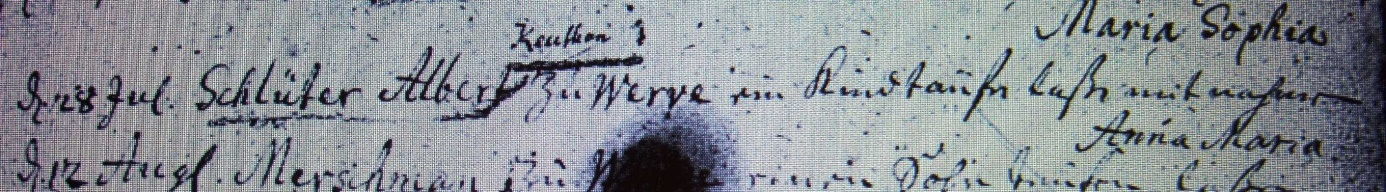 Maria Sophia
d. 28 Jul. Schlüter Albert zu Werve ein Kind taufen laßen mit nahmen
Anna Maria
d. 12 Aug. Merschman zu einen Sohn taufen laßen